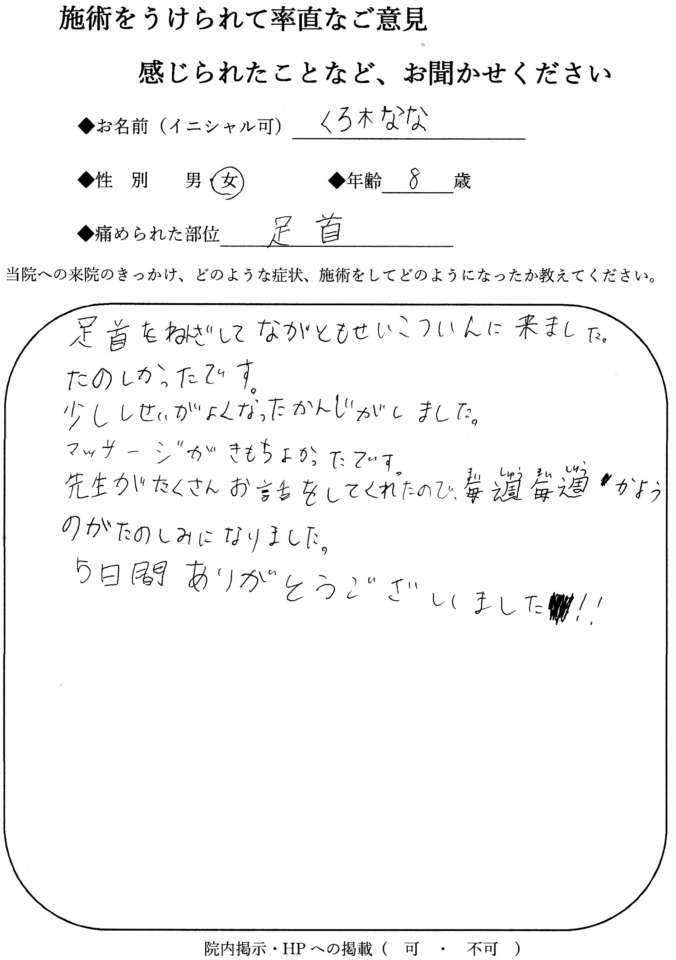 施術をうけられて率直なご意見
感じられたことなど、お聞かせください
◆お名前（イニシャル可） くろ木なな
◆性　別　　男・女　　◆年齢 8 歳
◆痛められた部位 足首
当院への来院のきっかけ、どのような症状、施術をしてどのようになったか教えてください。
足首をねんざして ながともせいこついんに 来ました。
たのしかったです。
少ししせいがよくなったかんじがしました。
マッサージがきもちよかったです。
先生がたくさんお話をしてくれたので、毎週毎週かよう
まいしゅうまいしゅう
のがたのしみになりました。
5日間ありがとうございしました!!
院内掲示・HPへの掲載（　可　・　不可　）